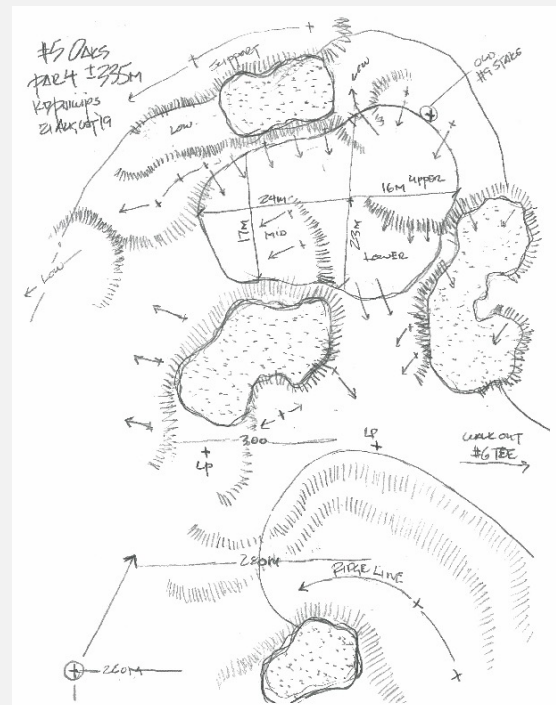 #5 OAKS
PAR 4 ±335M
KDPHILLIPS
21 AUGUST 19
SUPPORT
LOW
LOW
OLD
#9 STAKE
16M UPPER
24M
17M
MID
23M
LOWER
LOW
300
LP
LP
WALK OUT
#6 TEE
280M
RIDGE LINE
260M